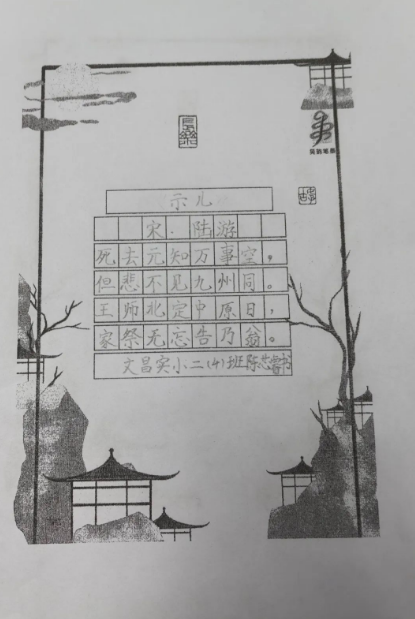 示儿
宋·陆游
死去元知万事空，
但悲不见九州同。
王师北定中原日，
家祭无忘告乃翁。
文昌实小二(4)班陈书